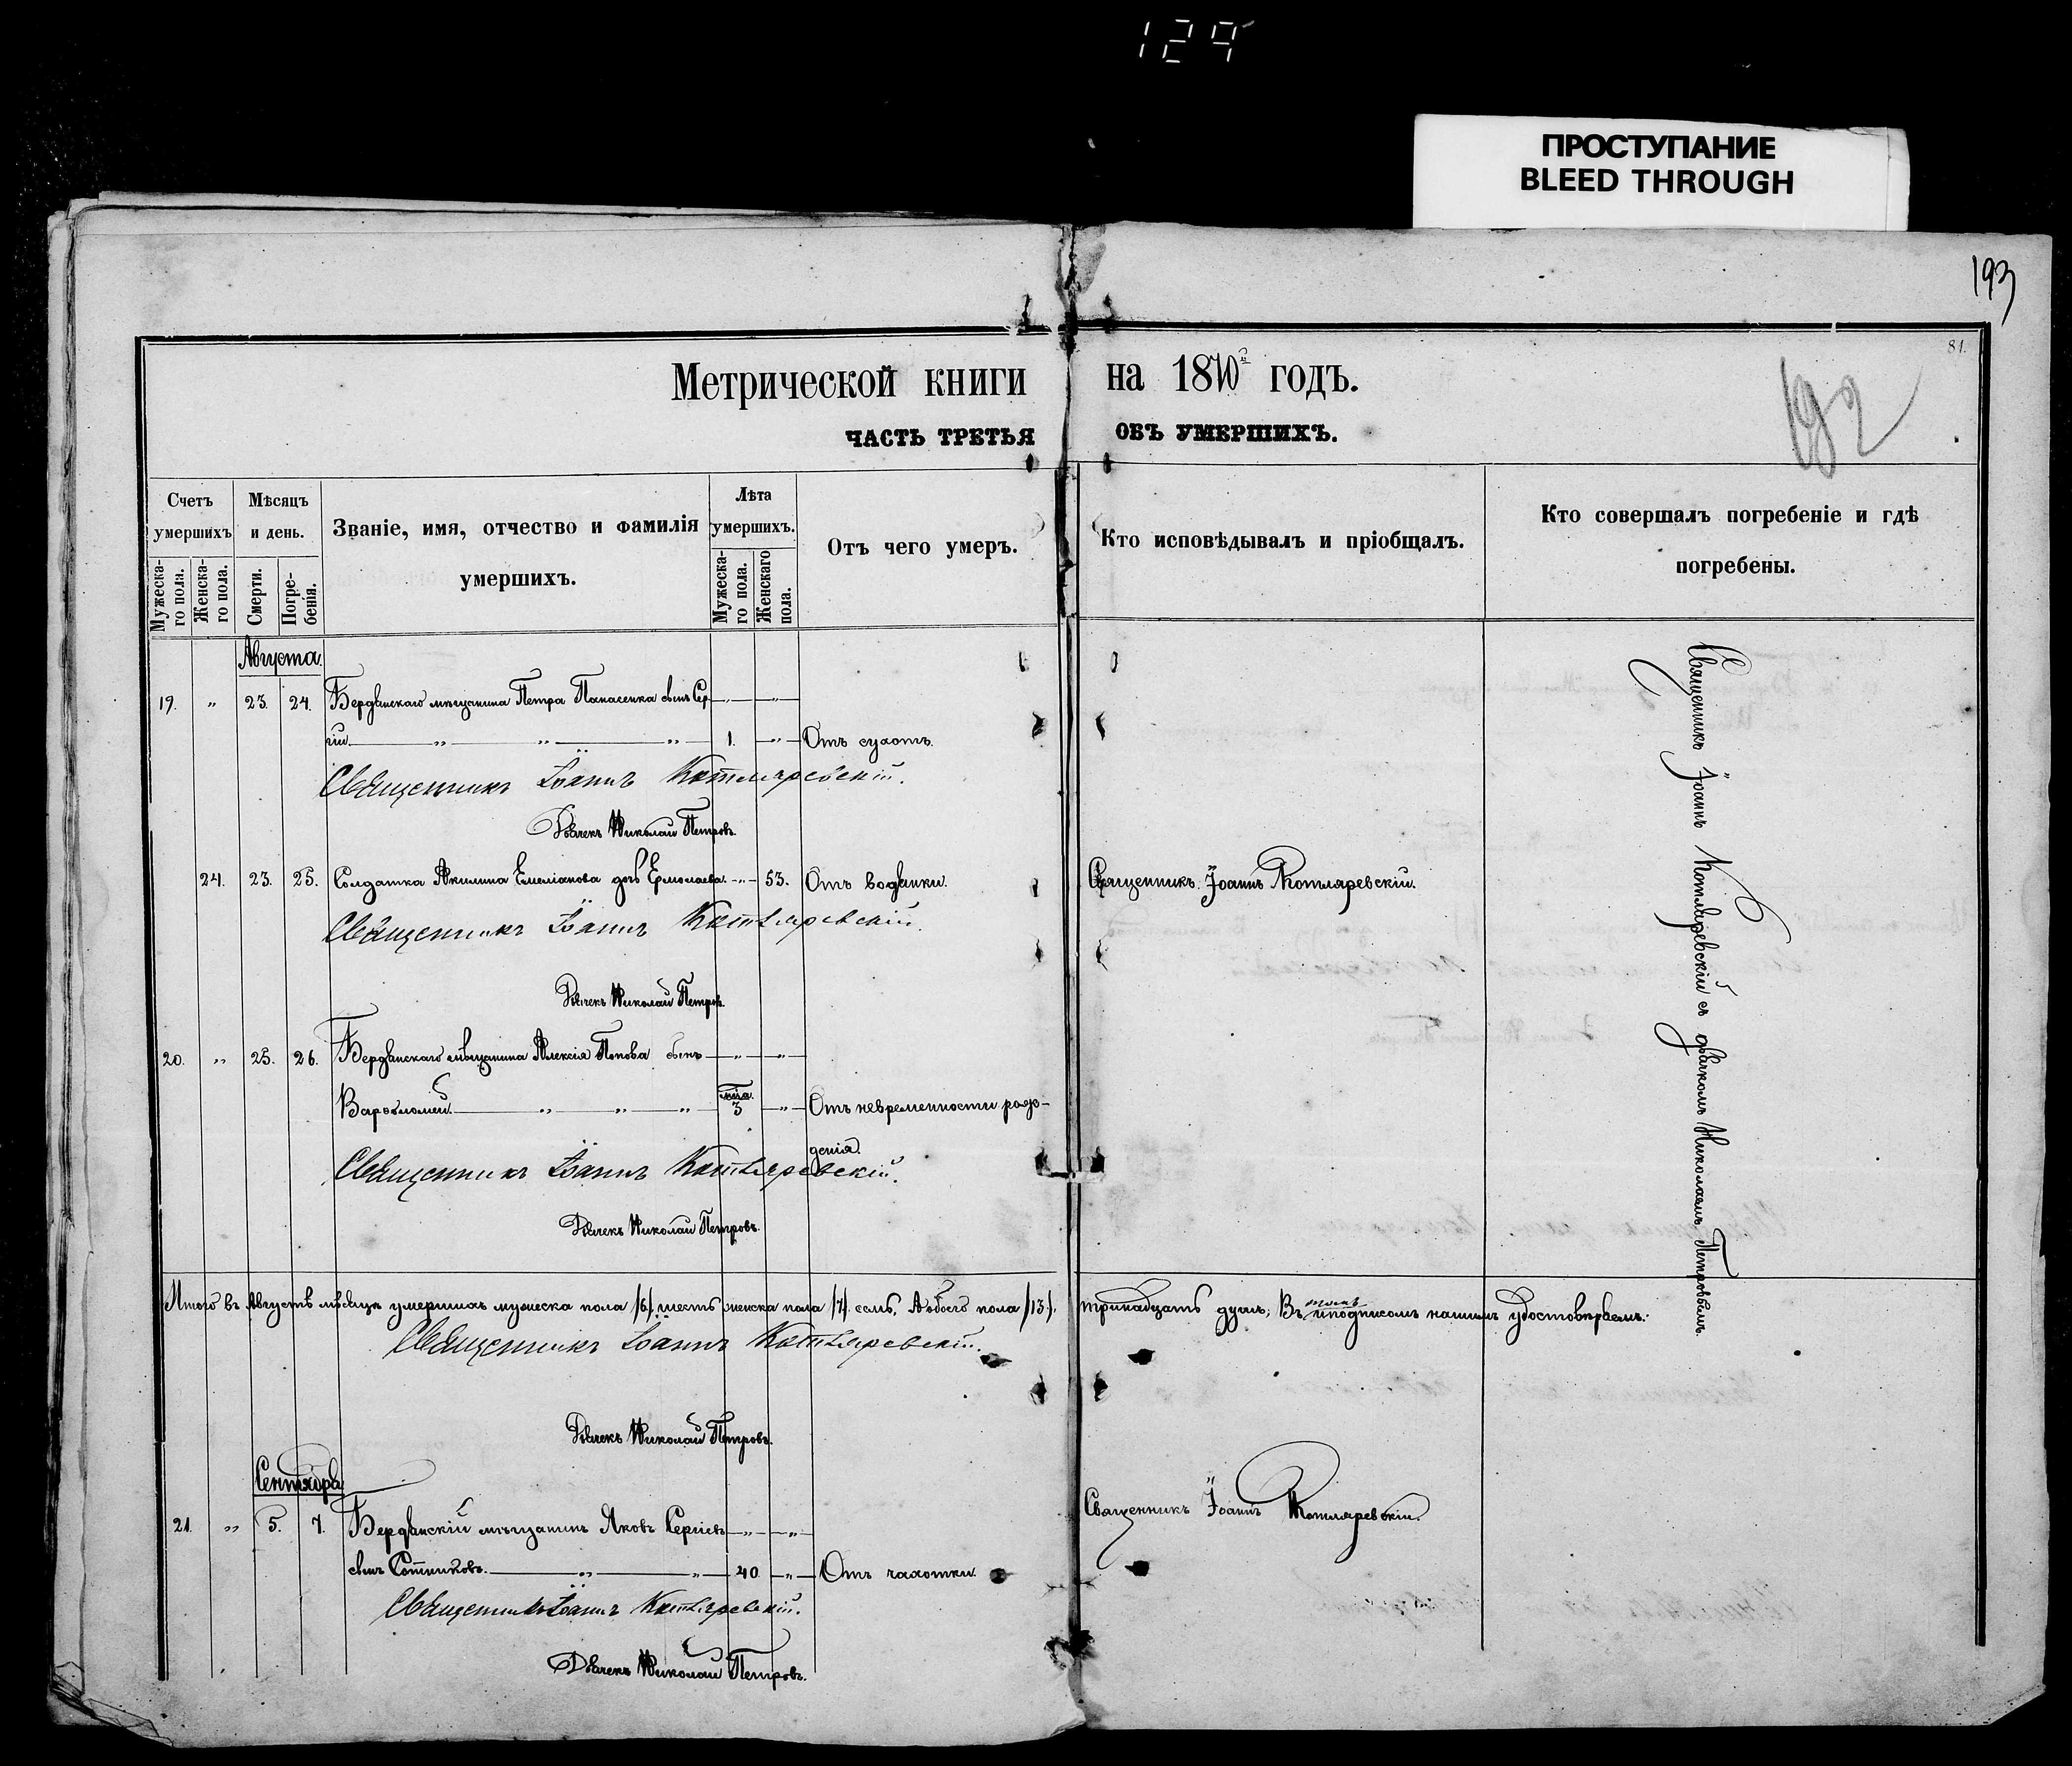 129
ПРОСТУПАНИЕ
BLEED THROUGH
193
81.
192
Метрической книги на 1870й годъ.
ЧАСТЬ ТРЕТЬЯ ОБЪ УМЕРШИХЪ.
Счетъ умершихъ
Мужеска-го пола.
Женска-го пола.
Мѣсяцъ и день.
Смерти.
Погре-бенія.
Званіе, имя, отчество и фамилія умершихъ.
Лѣта умершихъ.
Мужеска-го пола.
Женскаго пола.
Отъ чего умеръ.
Кто исповѣдывалъ и пріобщалъ.
Кто совершалъ погребеніе и гдѣ погребены.
Августа.
19. " 23. 24. Бердянскаго мѣщанина Петра Панасенка сынъ Сер- " "
гій " " " 1. " Отъ сухотъ.
Священникъ Іоаннъ Котляревскій.
Дьячекъ Николай Петровъ.
24. 23. 25. Солдатка Акилина Емеліанова дочь Ермолаева. " 53. Отъ водянки. Священникъ Іоаннъ Котляревскій.
Священникъ Іоаннъ Котляревскій.
Дьячекъ Николай Петровъ.
20. " 25. 26. Бердянскаго мѣщанина Алексія Попова сынъ " "
Варѳоломей. " " " 3 " Отъ невременности рож-
денія.
Священникъ Іоаннъ Котляревскій.
Дьячекъ Николай Петровъ.
Священникъ Іоаннъ Котляревскій съ дьячкомъ Николаемъ Петровымъ.
Итого въ Августѣ мѣсяцѣ умершихъ мужеска пола /6/ шесть женска пола /7/ семь, А обоего пола /13/. тринадцать душъ; Въ томъ и подписомъ нашимъ удостовѣряемъ:
Священникъ Іоаннъ Котляревскій.
Дьячекъ Николай Петровъ.
Сентября
21. " 5. 7. Бердянскій мѣщанинъ Яковъ Сергіевъ " " Священникъ Іоаннъ Котляревскій.
сынъ Сотниковъ. " " 40. " Отъ чахотки.
Священникъ Іоаннъ Котляревскій.
Дьячекъ Николай Петровъ.